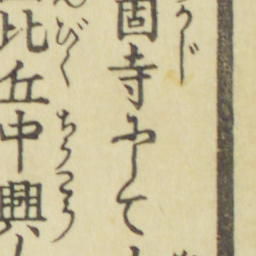 固寺にして
比丘中興
びくちうこう